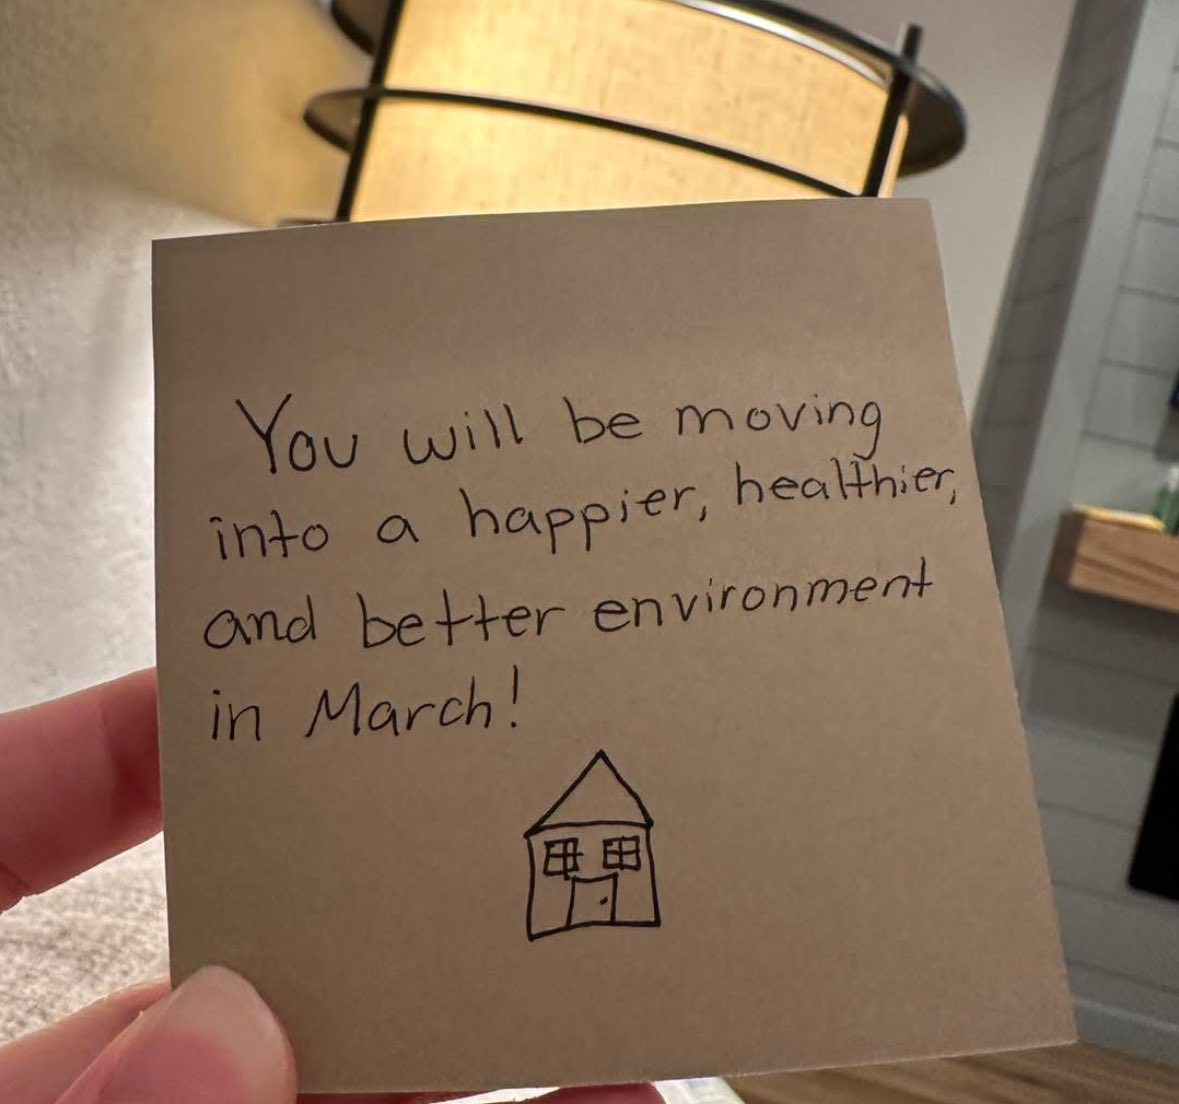 You will be moving
into a happier, healthier,
and better environment
in March!